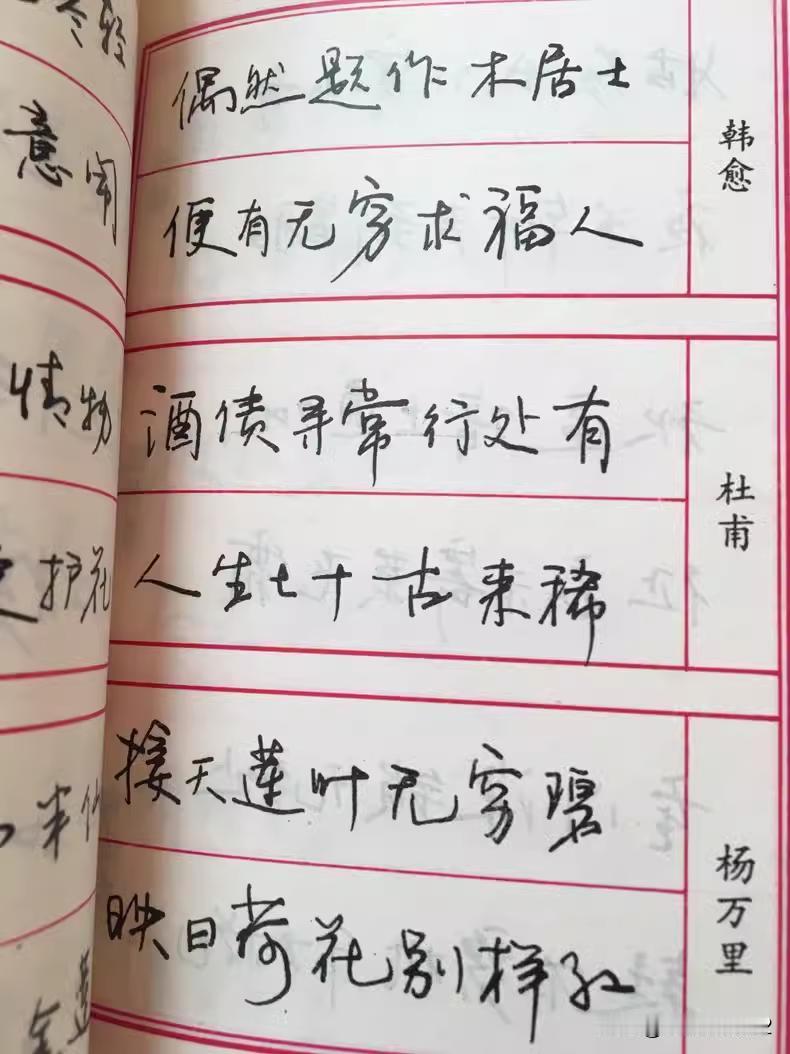 偶然题作木居士
便有无穷求福人
韩愈
酒债寻常行处有
人生七十古来稀
杜甫
接天莲叶无穷碧
映日荷花别样红
杨万里
意闹
情物
护花